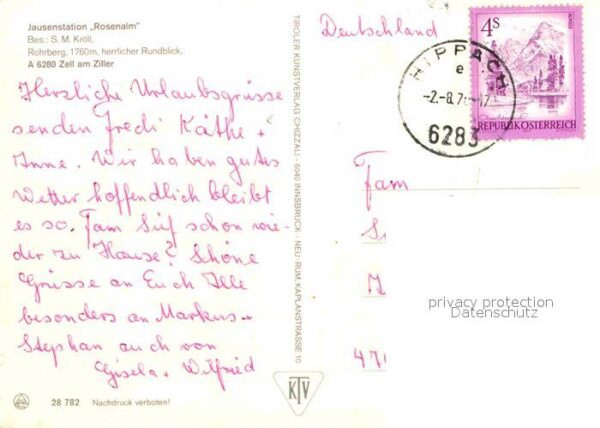 Jausenstation „Rosenalm"
Bes.: S. M. Kröll.
Rohrberg, 1760m, herrlicher Rundblick.
A 6280 Zell am Ziller
Herzliche Urlaubsgrüsse
senden Fredi Käthe +
Anne. Wir haben gutes
Wetter hoffendlich bleibt
es so. Fam schon wie-
der zu Hause? Schöne
Grüsse an Euch Alle
besonders an Markus +
Stephan auch von
Gisela + Wilfried
28 782 Nachdruck verboten!
TIROLER KUNSTVERLAG CHIZZALI · 6040 INNSBRUCK - NEU-RUM, KAPLANSTRASSE 10
KTV
Deutschland
HIPPACH
e
-2.-8.7
6283
4S
REPUBLIK ÖSTERREICH
Fam
470
privacy protection
Datenschutz